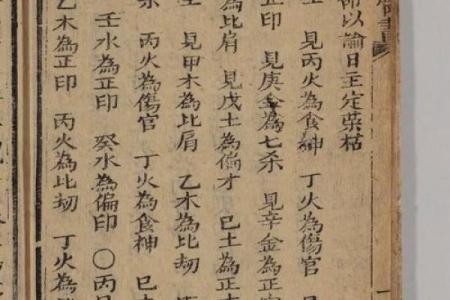 以論日主定荣枯
見丙火為食神 丁火為傷官 見
正印 見庚金為七杀 見辛金為正
為比肩 見戊土為偏才 巳土為正
見甲木為比肩 乙木為比刼
丙火為傷官 丁火為食神 巳
壬水為正印 癸水為偏印 〇丙
乙木為正印 丙火為比刼 丁火為